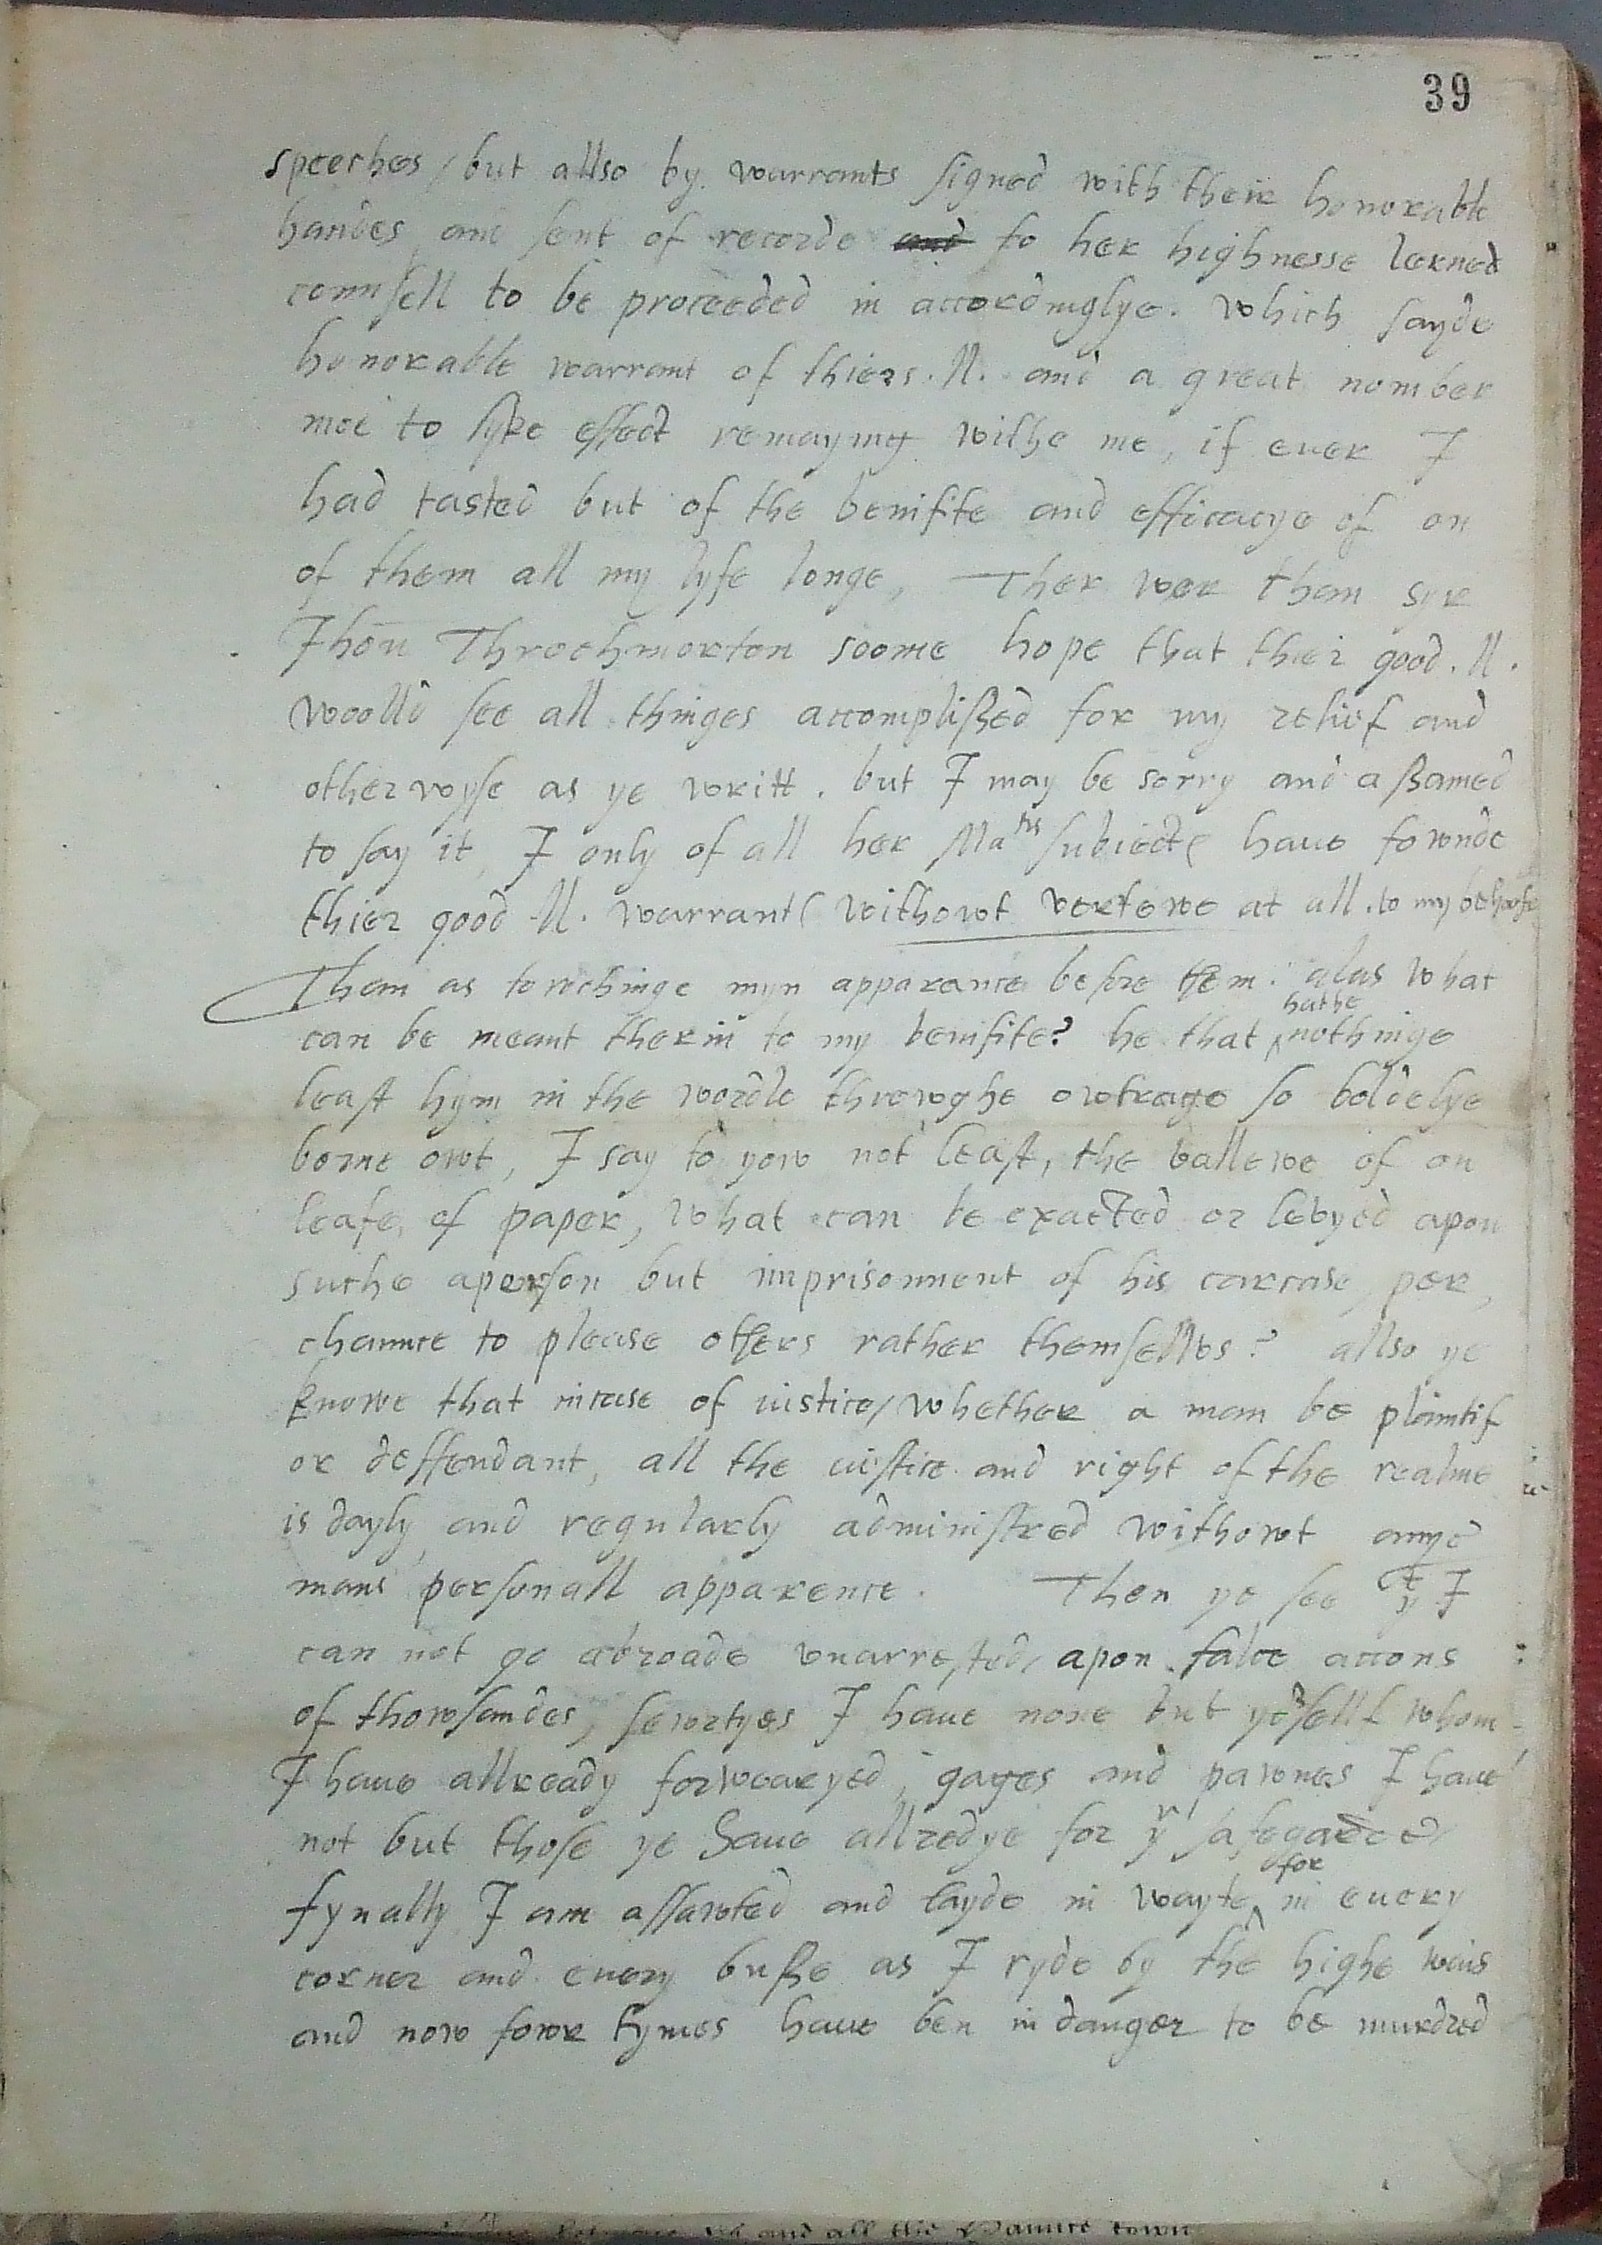 39
speeches / but allso by warrants signed with their honorable
handes and sent of recorde and to her highnesse lerned
counsell to be proceeded in accordinglye. Which sayde
honorable warrant of thiers. ll. and a great nomber
moe to lyke effect remayning withe me, if euer I
had tasted but of the benifite and efficacye of on
of them all my lyfe longe, Ther wer them syr
Ihon Throchmorton soome hope that thier good. ll.
woolld see all thinges accomplished for my relief and
otherwyse as ye writt. but I may be sorry and ashamed
to say it, I only of all her Matis subiectes haue fownde
thier good ll. warrantes withowt vertewe at all. to my behoofe
Then as towchinge myn apparance before them. alas what
can be meant therin to my benifite? he that ^ hathe nothinge
least hym in the worlde throwghe owtrage so boldelye
borne owt, I say to yow not least, the vallewe of on
leafe of paper, What can be exacted or levyed apon
suche aperson but imprisonment of his carcase, per,
chaunce to please others rather themsellves? allso ye
knowe that incase of iustice / whether a man be plaintif
or deffendant, all the iustice and right of the realme
is dayly and regularly administred withowt annye
mans personall apparence. Then ye see yt I
can not go abroade vnarrested, apon false accons
of thowsandes, sewrtyes I haue none but yorsellf whom
I haue allready forwearyed, gages and pawnes I haue
not but those ye haue allredye for yr safegarde,
fynally I am assawted and layde in wayte ^ for in euery
corner and euery bushe as I ryde by the highe weis
and now fowr tymes haue ben in danger to be murdred
and all the
town